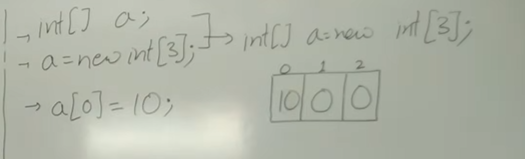 → int[] a;
→ a=new int[3];
→ int[] a=new int[3];
→ a[0]=10;
0 1 2
10 0 0